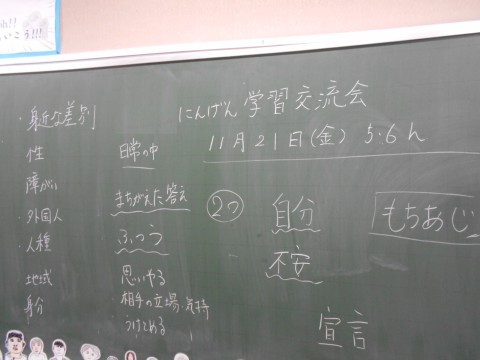 oh!!
いこう!!!
・身近な差別
性
障がい
・外国人
・人種
地域
身分
日常の中
まちがえた答え
ふつう
思いやる
相手の立場・気持
うけとめる
にんげん学習交流会
11月21日(金) 5.6h
②つ
自分
不安
宣言
もちあじ